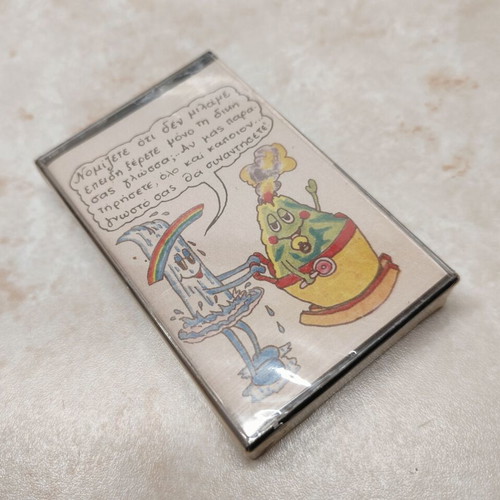 Νομίζετε ότι δεν μιλάμε
επειδή ξέρετε μόνο τη δική
σας γλώσσα;. Αν μας παρα
τηρήσετε, όλο και κάποιον..
γνωστό σας θα συναντήσετε